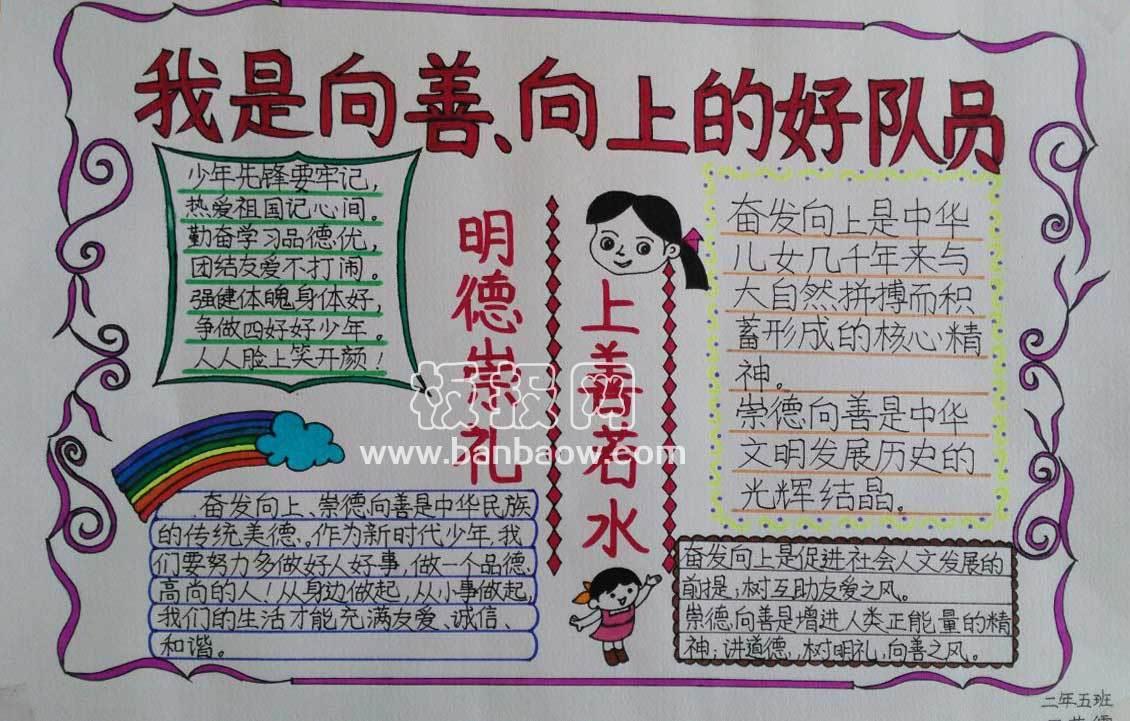 我是向善、向上的好队员
少年先锋要牢记,
热爱祖国记心间。
勤奋学习品德优,
团结友爱不打闹。
强健体魄身体好,
争做四好好少年。
人人脸上笑开颜!
明德崇礼
上善若水
奋发向上是中华
儿女几千年来与
大自然拼搏而积
蓄形成的核心精
神。
崇德向善是中华
文明发展历史的
光辉结晶。
板报网
www.banbaow.com
奋发向上、崇德向善是中华民族
的传统美德、作为新时代少年,我
们要努力多做好人好事,做一个品德
高尚的人!从身边做起,从小事做起,
我们的生活才能充满友爱、诚信、
和谐。
奋发向上是促进社会人文发展的
前提;树互助友爱之风。
崇德向善是增进人类正能量的精
神;讲道德,树明礼,向善之风。
二年五班